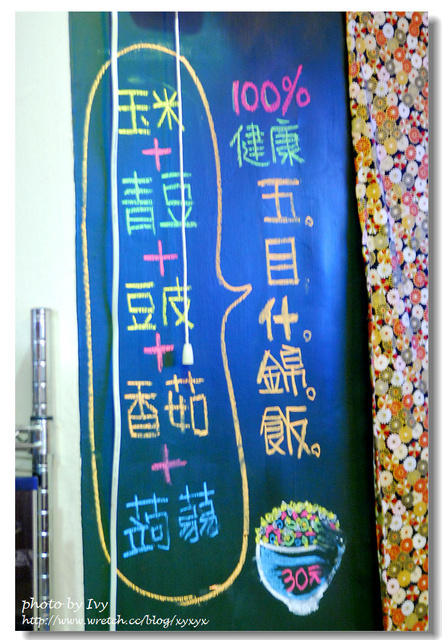 100%
健康
五。目什。錦。飯。
玉米
+
青豆
+
豆皮
+
香菇
+
蒟蒻
30元
photo by Ivy
http://www.wretch.cc/blog/xyxyx